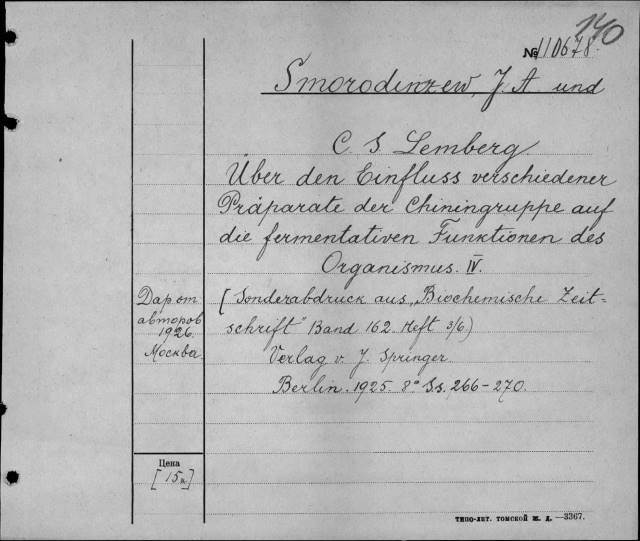 140
№ 110678.
Smorodinzew, J. A. und
C. S. Lemberg.
Über den Einfluss verschiedener
Präparate der Chiningruppe auf
die fermentativen Funktionen des
Organismus. IV.
[Sonderabdruck aus „Biochemische Zeit=
schrift" Band 162. Heft 3/6)
Verlag v. J. Springer.
Berlin. 1925. 8° Ss. 266-270.
Дар от
авторов
1926.
Москва.
Цена
[15к.]
ТИПО-ЛИТ. ТОМСКОЙ Ж. Д. —3367.